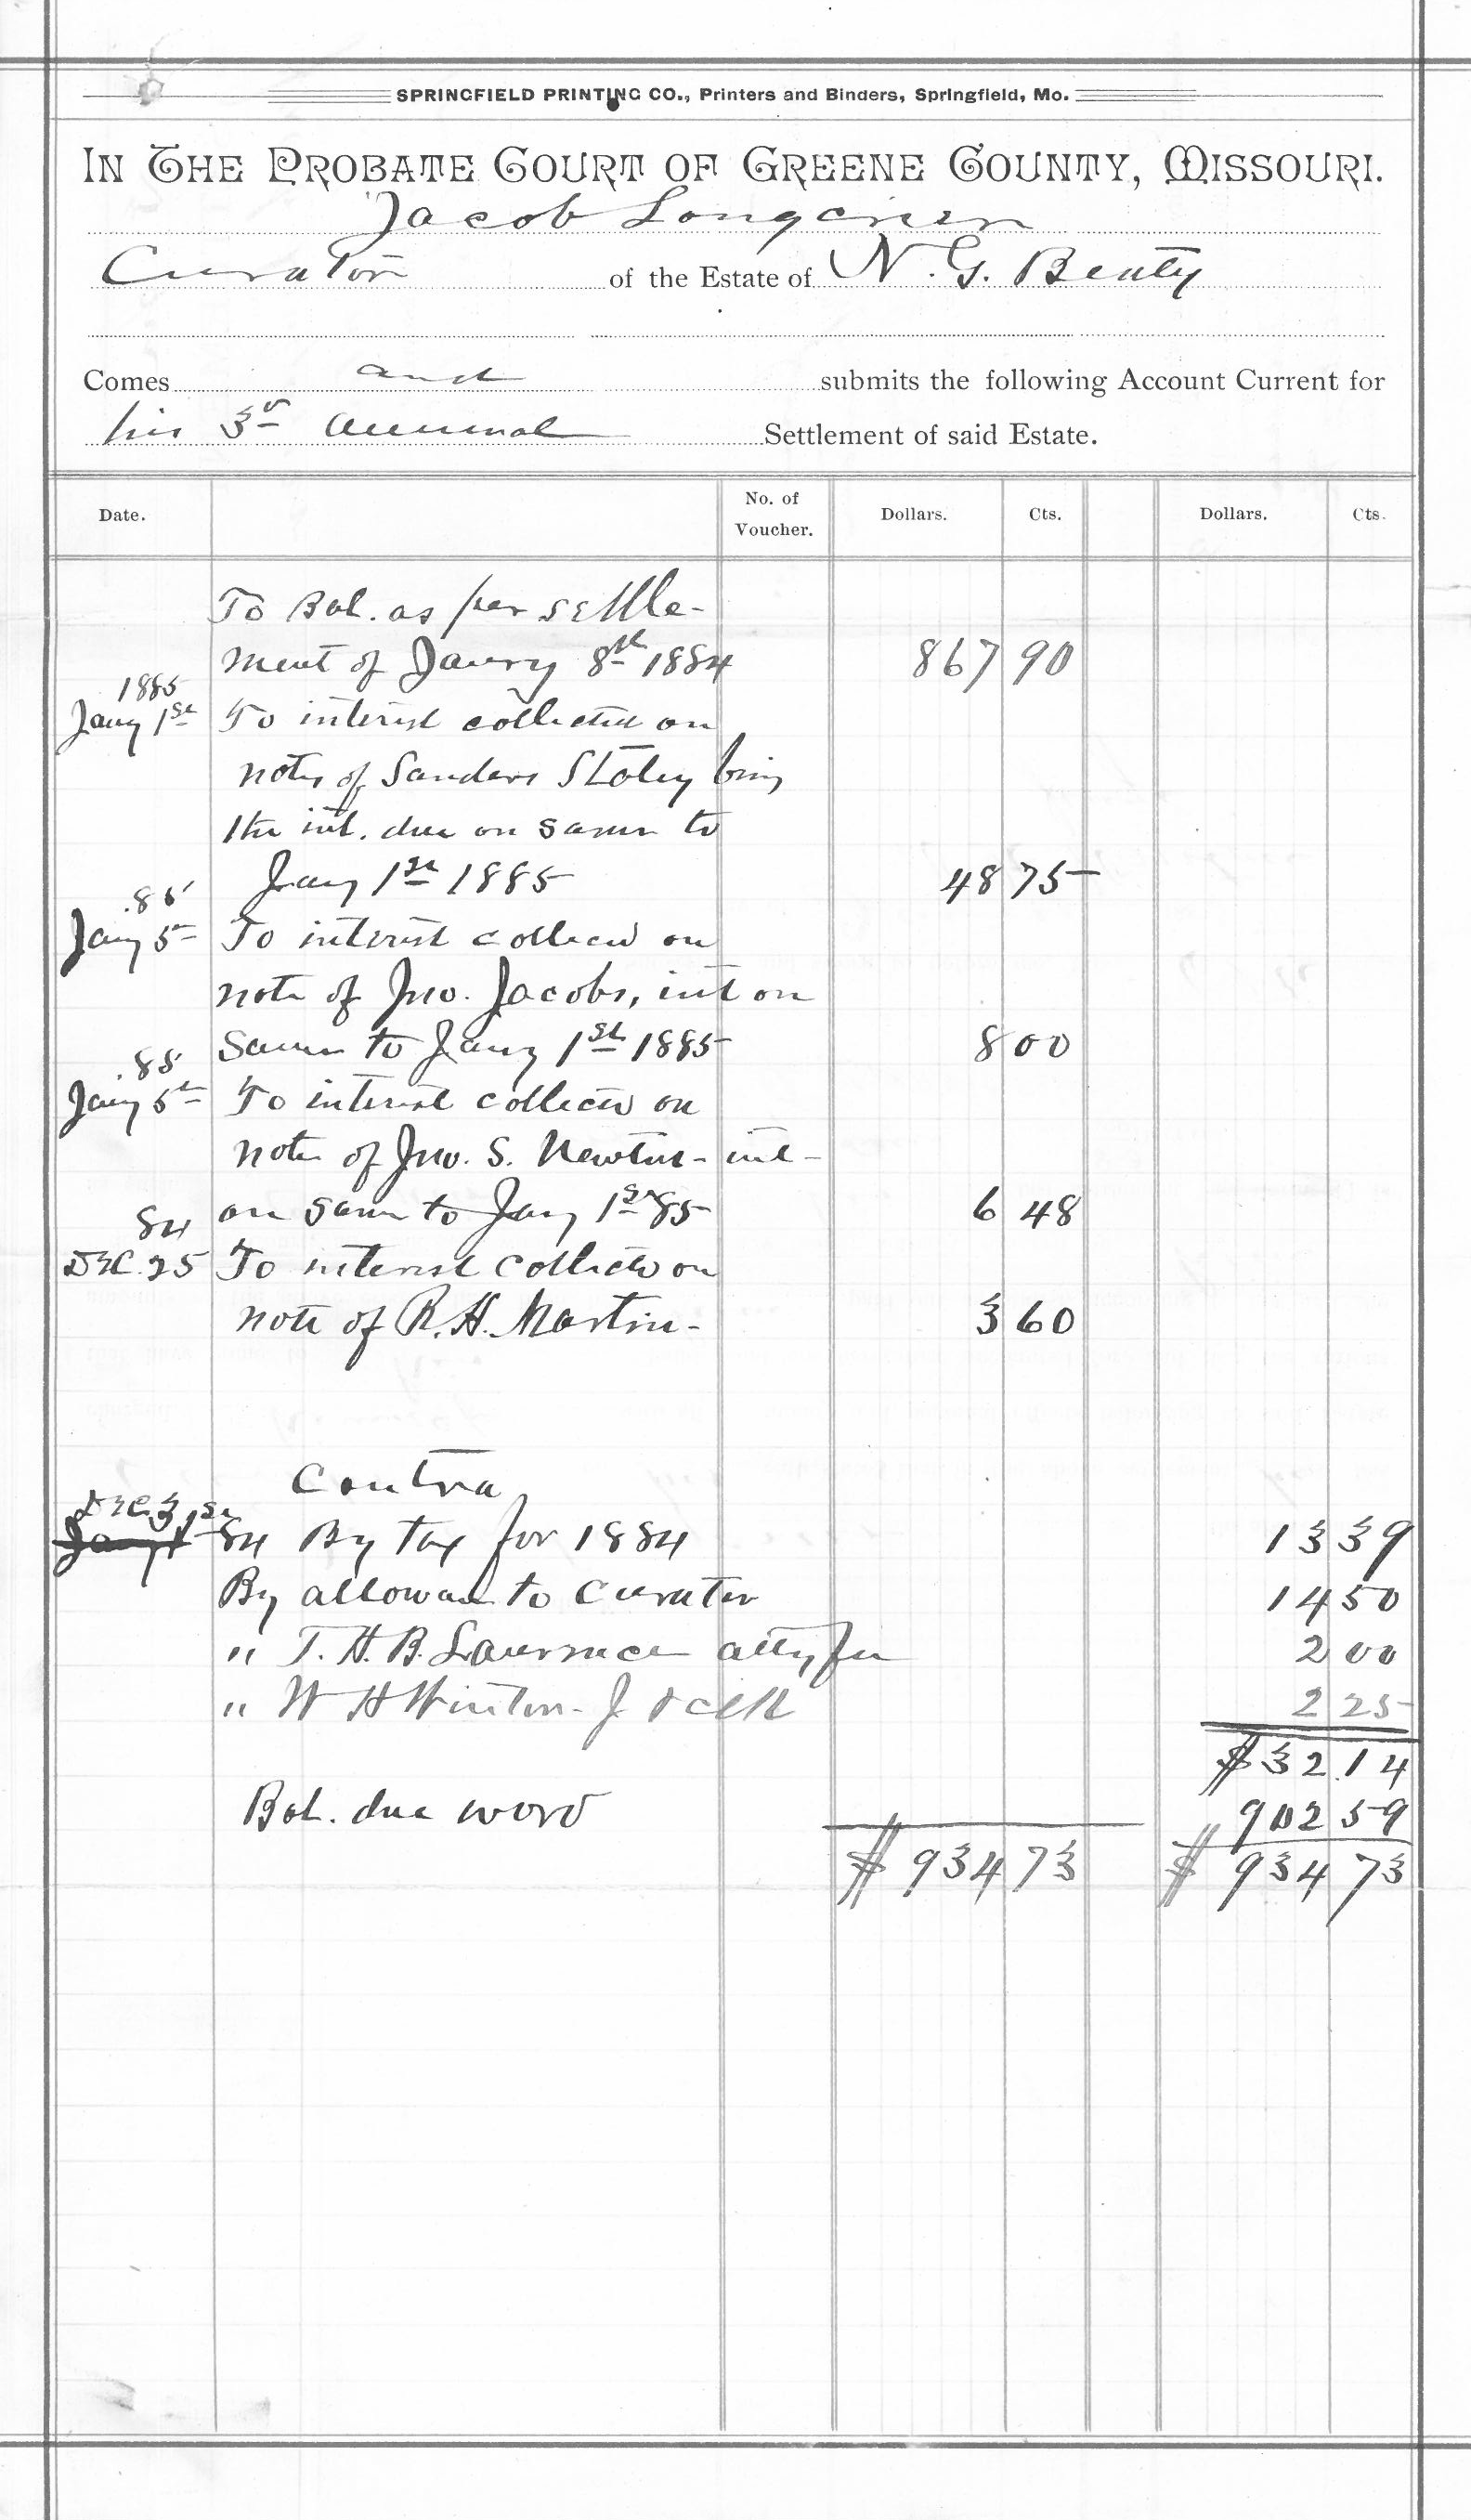 SPRINGFIELD PRINTING CO., Printers and Binders, Springfield, Mo.
IN THE PROBATE COURT OF GREENE COUNTY, MISSOURI.
Jacob Longcrier
Curator of the Estate of N. G. Beaty
Comes and submits the following Account Current for
his 3rd Annual Settlement of said Estate.
Date. No. of Voucher. Dollars. Cts. Dollars. Cts.
To Bal. as per settle-
ment of Janry 8th 1884 867 90
1885
Jany 1st To interest collected on
notes of Sanders Staley being
the int. due on same to
Jany 1st 1885 48 75
85
Jany 5th To interest collected on
note of Jno. Jacobs, int on
same to Jany 1st 1885 8 00
85
Jany 5th To interest collected on
note of Jno. S. Newton - int -
on same to Jany 1st 85 6 48
84
Dec. 25 To interest collected on
note of R. H. Martin - 3 60
Contra
Dec. 31st
84 By tax for 1884 13 39
By allowance to Curator 14 50
" T. H. B. Lawrence atty fee 2 00
" W H Winton - J & clk 2 25
$32 14
Bal. due ward 902 59
$934 73 $934 73